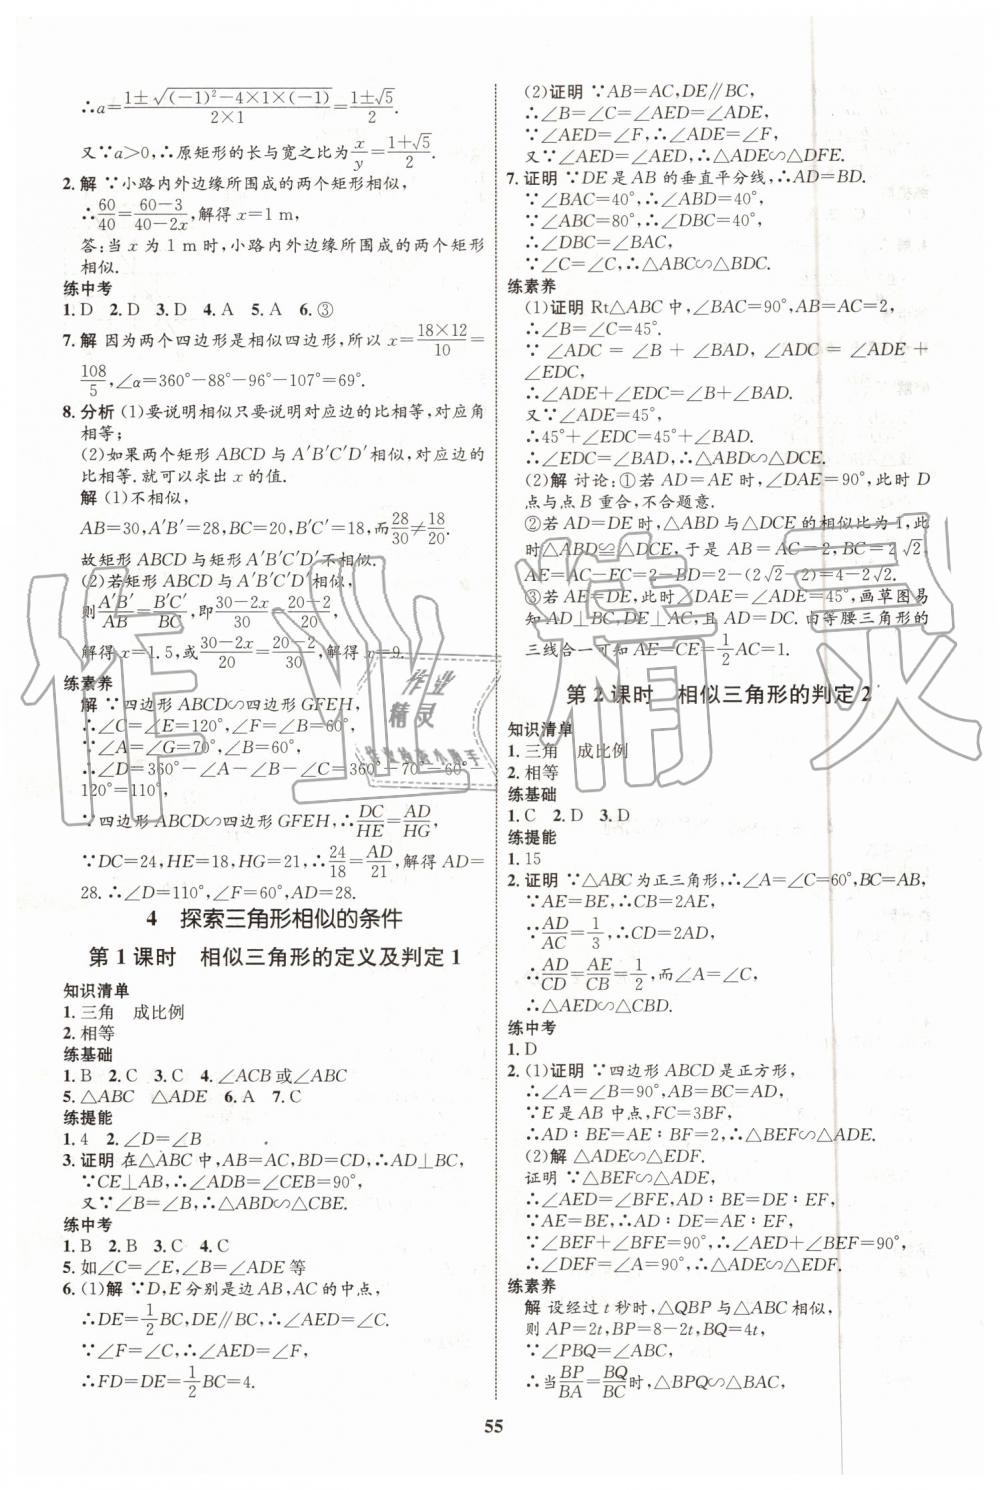 ∴a=\frac{1±\sqrt{(-1)²-4×1×(-1)}}{2×1}=\frac{1±\sqrt{5}}{2}.
又∵a>0,∴原矩形的长与宽之比为\frac{x}{y}=\frac{1+\sqrt{5}}{2}.
2. 解 ∵小路内外边缘所围成的两个矩形相似,
∴\frac{60}{40}=\frac{60-3}{40-2x},解得 x=1 m,
答:当 x 为 1 m 时,小路内外边缘所围成的两个矩形
相似.
练中考
1. D 2. D 3. D 4. A 5. A 6. ③
7. 解 因为两个四边形是相似四边形,所以 x=\frac{18×12}{10}=
\frac{108}{5},∠α=360°-88°-96°-107°=69°.
8. 分析 (1)要说明相似只要说明对应边的比相等,对应角
相等;
(2)如果两个矩形 ABCD 与 A′B′C′D′相似,对应边的
比相等.就可以求出 x 的值.
解 (1)不相似,
AB=30,A′B′=28,BC=20,B′C′=18,而\frac{28}{30}≠\frac{18}{20}
故矩形 ABCD 与矩形 A′B′C′D′不相似.
(2)若矩形 ABCD 与矩形 A′B′C′D′相似,
则\frac{A′B′}{AB}=\frac{B′C′}{BC},即\frac{30-2x}{30}=\frac{20-2}{20}
解得 x=1.5,或\frac{30-2x}{20}=\frac{20-2}{30},解得 x=9.
练素养
解 ∵四边形 ABCD∽四边形 GFEH,
∴∠C=∠E=120°,∠F=∠B=60°,
∵∠A=∠G=70°,
∴∠D=360°-∠A-∠B-∠C=360°-70°-60°-
120°=110°,
∵四边形 ABCD∽四边形 GFEH,∴\frac{DC}{HE}=\frac{AD}{HG}
∵DC=24,HE=18,HG=21,∴\frac{24}{18}=\frac{AD}{21},解得 AD=
28.∴∠D=110°,∠F=60°,AD=28.
4 探索三角形相似的条件
第 1 课时 相似三角形的定义及判定 1
知识清单
1. 三角 成比例
2. 相等
练基础
1. B 2. C 3. C 4. ∠ACB或∠ABC
5. △ABC △ADE 6. A 7. C
练提能
1. 4 2. ∠D=∠B
3. 证明 在△ABC 中,AB=AC,BD=CD,∴AD⊥BC,
∵CE⊥AB,∴∠ADB=∠CEB=90°,
又∵∠B=∠B,∴△ABD∽△CBE.
练中考
1. B 2. B 3. C 4. C
5. 如∠C=∠E,∠B=∠ADE 等
6. (1)解 ∵D,E 分别是边 AB,AC 的中点,
∴DE=\frac{1}{2}BC,DE∥BC,
∵∠F=∠C,∴∠AED=∠F,
∴FD=DE=\frac{1}{2}BC=4.
(2)证明 ∵AB=AC,DE∥BC,
∴∠B=∠C=∠AED=∠ADE,
∵∠AED=∠F,∴∠ADE=∠F,
又∵∠AED=∠AED,∴△ADE∽△DFE.
7. 证明 ∵DE 是 AB 的垂直平分线,∴AD=BD.
∵∠BAC=40°,∴∠ABD=40°,
∵∠ABC=80°,∴∠DBC=40°,
∴∠DBC=∠BAC,
∵∠C=∠C,∴△ABC∽△BDC.
练素养
(1)证明 Rt△ABC 中,∠BAC=90°,AB=AC=2,
∴∠B=∠C=45°.
∵ ∠ADC = ∠B + ∠BAD, ∠ADC = ∠ADE +
∠EDC,
∴∠ADE+∠EDC=∠B+∠BAD.
又∵∠ADE=45°,
∴45°+∠EDC=45°+∠BAD.
∴∠EDC=∠BAD,∴△ABD∽△DCE.
(2)解 讨论:①若 AD=AE 时,∠DAE=90°,此时 D
点与点 B 重合,不合题意.
②若 AD=DE 时,△ABD 与△DCE 的相似比为 1,此
时△ABD≌△DCE,于是 AB=AC=2,BC=2\sqrt{2},
AE=AC-EC=2-BD=2-(2\sqrt{2}-2)=4-2\sqrt{2}
③若 AE=DE,此时∠DAE=∠ADE=45°,画草图易
知 AD⊥BC,DE⊥AC,且 AD=DC. 由等腰三角形的
三线合一可知 AE=CE=\frac{1}{2}AC=1.
第 2 课时 相似三角形的判定 2
知识清单
1. 三角 成比例
2. 相等
练基础
1. C 2. D 3. D
练提能
1. 15
2. 证明 ∵△ABC 为正三角形,∴∠A=∠C=60°,BC=AB,
∵AE=BE,∴CB=2AE,
∵\frac{AD}{AC}=\frac{1}{3},∴CD=2AD,
∴\frac{AD}{CD}=\frac{AE}{CB}=\frac{1}{2},而∠A=∠C,
∴△AED∽△CBD.
练中考
1. D
2. (1)证明 ∵四边形 ABCD 是正方形,
∴∠A=∠B=90°,AB=BC=AD,
∵E 是 AB 中点,FC=3BF,
∴AD∶BE=AE∶BF=2,∴△BEF∽△ADE.
(2)解 △ADE∽△EDF.
证明 ∵△BEF∽△ADE,
∴∠AED=∠BFE,AD∶BE=DE∶EF,
∵AE=BE,∴AD∶DE=AE∶EF,
∵∠BEF+∠BFE=∠BEF+∠AED=90°,
∴∠DEF=∠A=90°,∴△ADE∽△EDF.
练素养
解 设经过 t 秒时,△QBP 与△ABC 相似,
则 AP=2t,BP=8-2t,BQ=4t,
∵∠PBQ=∠ABC,
∴当\frac{BP}{BA}=\frac{BQ}{BC}时,△BPQ∽△BAC,
55
作业精灵
作业
精灵